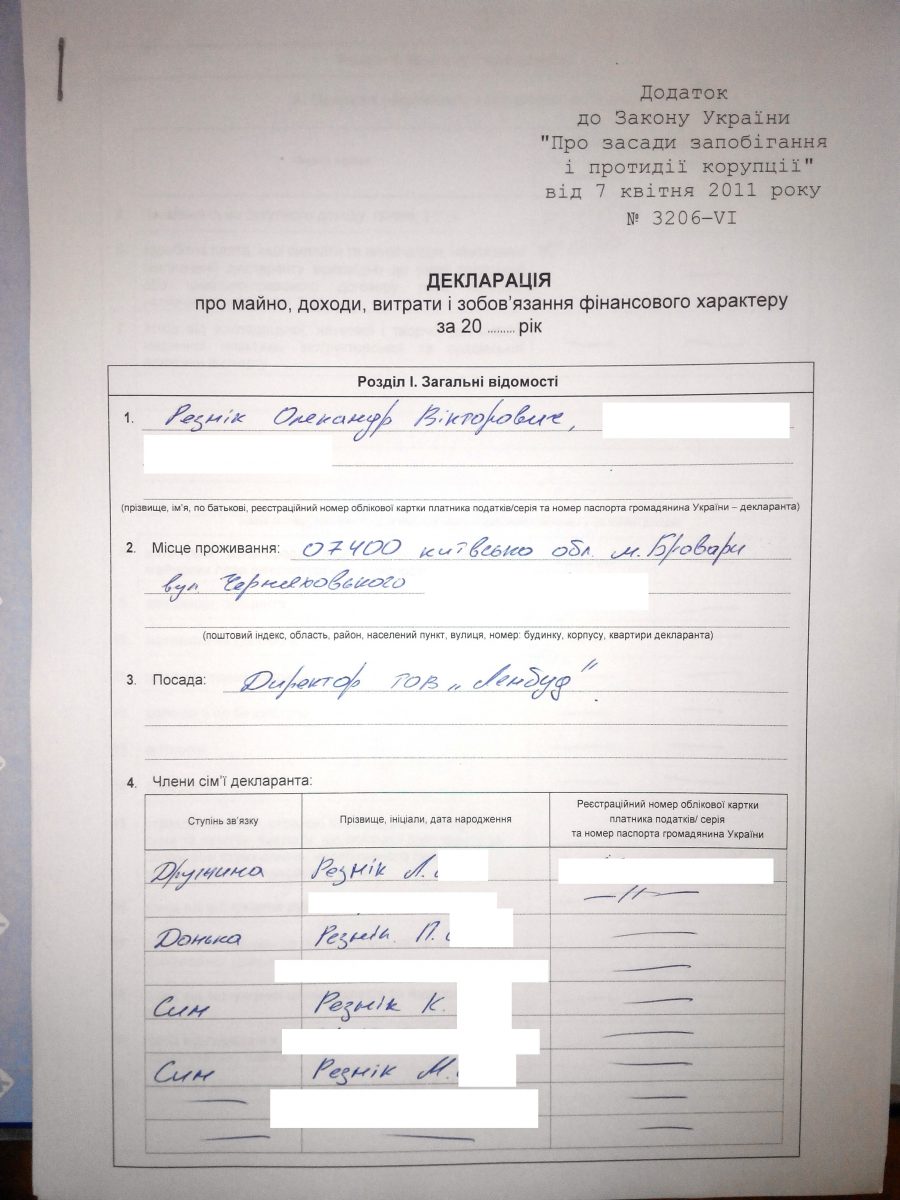 Додаток
до Закону України
"Про засади запобігання
і протидії корупції"
від 7 квітня 2011 року
№ 3206-VI
ДЕКЛАРАЦІЯ
про майно, доходи, витрати і зобов’язання фінансового характеру
за 20 ......... рік
Розділ I. Загальні відомості
1. Резнік Олександр Вікторович,
(прізвище, ім’я, по батькові, реєстраційний номер облікової картки платника податків/серія та номер паспорта громадянина України – декларанта)
2. Місце проживання: 07400 київська обл. м. Бровари
вул Черняховського
(поштовий індекс, область, район, населений пункт, вулиця, номер: будинку, корпусу, квартири декларанта)
3. Посада: Директор ТОВ „Ленбуд”.
4. Члени сім’ї декларанта:
Ступінь зв’язку
Прізвище, ініціали, дата народження
Реєстраційний номер облікової картки
платника податків/ серія
та номер паспорта громадянина України
Дружина Резнік Л.
—//—
Донька Резнік П.
Син Резнік К.
Син Резнік М.